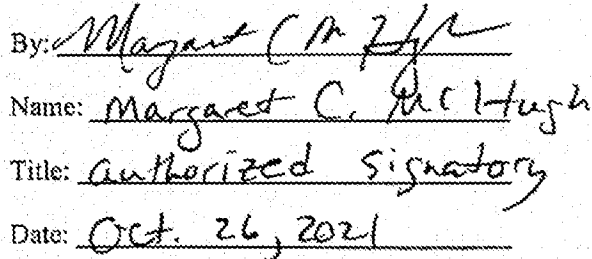 By: Margaret C McHugh
Name: Margaret C. McHugh
Title: authorized signatory
Date: Oct. 26, 2021